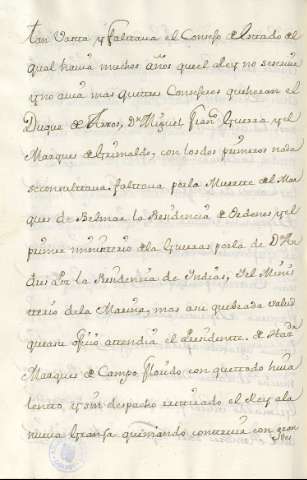 tan Vasta y faltava el Consejo de estado al
qual havia muchos años que el Rey no
y no avia mas que tres Consejeros que heran el
Duque de Arcos, Dn Miguel Franco Guerra y el
Marques de Grimaldo, con los dos primeros nada
se consultava. faltava por la Muerte del Mar
ques de Bedmar la Residencia de Ordenes y el
primer ministerio de la Guerra por la de Dn An
dres la Residencia de Indias, y el Minis
terio de la Marina, mas asi quebrada salud
que a su oficio attendia el Presidente de Hacda
Marques de Campo florido con que todo hiva
lento, y sin despacho retirado el Rey a la
nueva Granja queriendo concurrir con gran